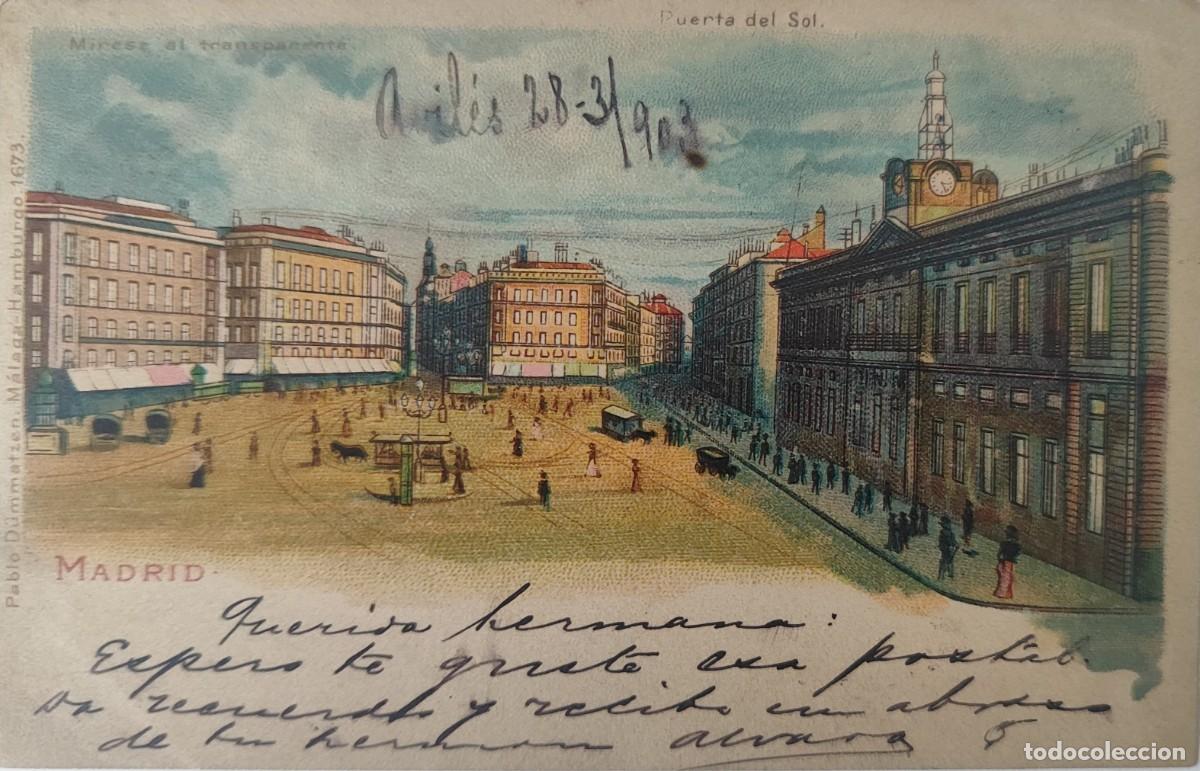 Puerta del Sol.
Mirese al transparente.
Avilés 28-3/903
Pablo Dümmatzen Málaga-Hamburgo. 1673.
MADRID.
Querida hermana:
Espero te guste esa postal
da recuerdos y recibe un abrazo
de tu hermano Alvaro
todocoleccion